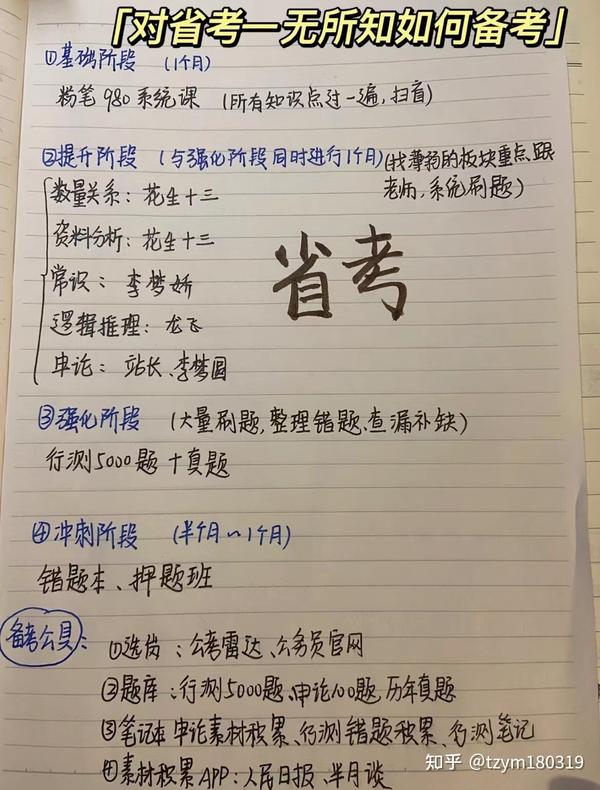 「对省考一无所知如何备考」
①基础阶段 (1个月)
粉笔980系统课 (所有知识点过一遍,扫盲)
②提升阶段 (与强化阶段同时进行1个月)(找薄弱的板块重点、跟
老师,系统刷题)
数量关系:花生十三
资料分析:花生十三
常识:李梦娇
逻辑推理:龙飞
申论:站长、李梦圆
省考
③强化阶段 (大量刷题,整理错题、查漏补缺)
行测5000题十真题
④冲刺阶段 (半个月~1个月)
错题本、押题班
备考公具:
①选岗:公考雷达、公务员官网
②题库:行测5000题、申论100题,历年真题
③笔记本 申论素材积累、行测错题积累、行测笔记
④素材积累APP:人民日报、半月谈
知乎 @tzym180319